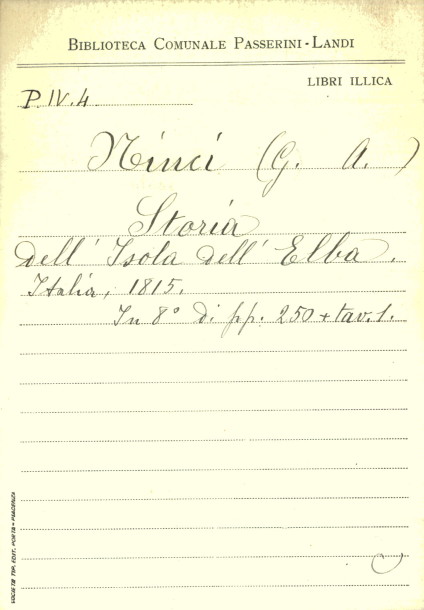 BIBLIOTECA COMUNALE PASSERINI-LANDI
LIBRI ILLICA
P.IV.4
Ninci (G. A.)
Storia
dell' Isola dell' Elba.
Italia, 1815.
In 8° di pp. 250 + tav. 1.
TIP. EDIT. PORTA - PIACENZA